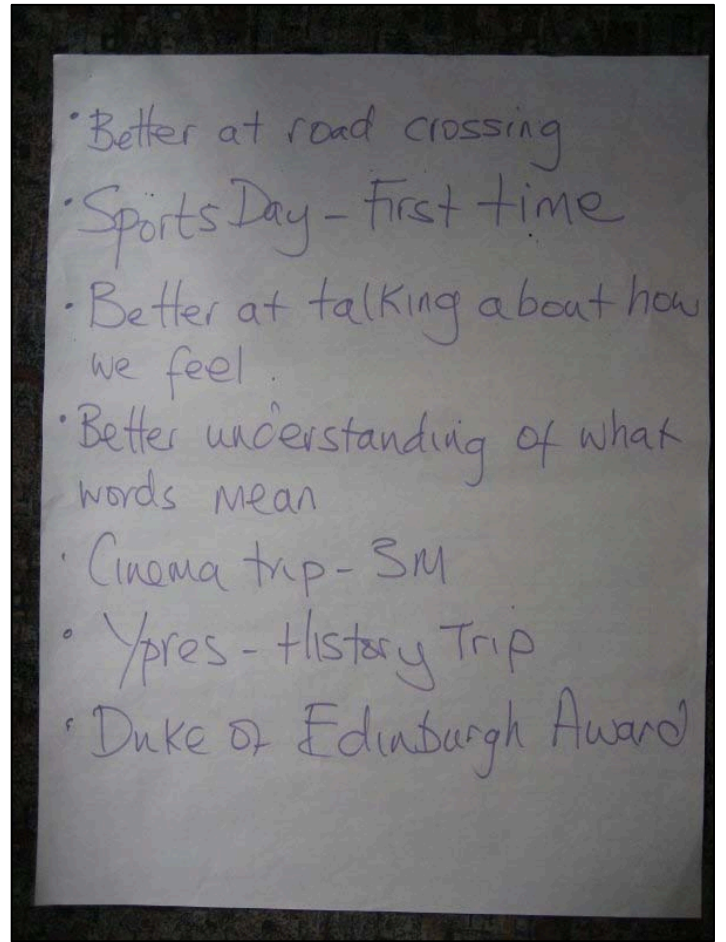 • Better at road crossing
• Sports Day - First time
• Better at talking about how
we feel.
• Better understanding of what
words mean
• Cinema trip - 3M
• Ypres - History Trip
• Duke of Edinburgh Award